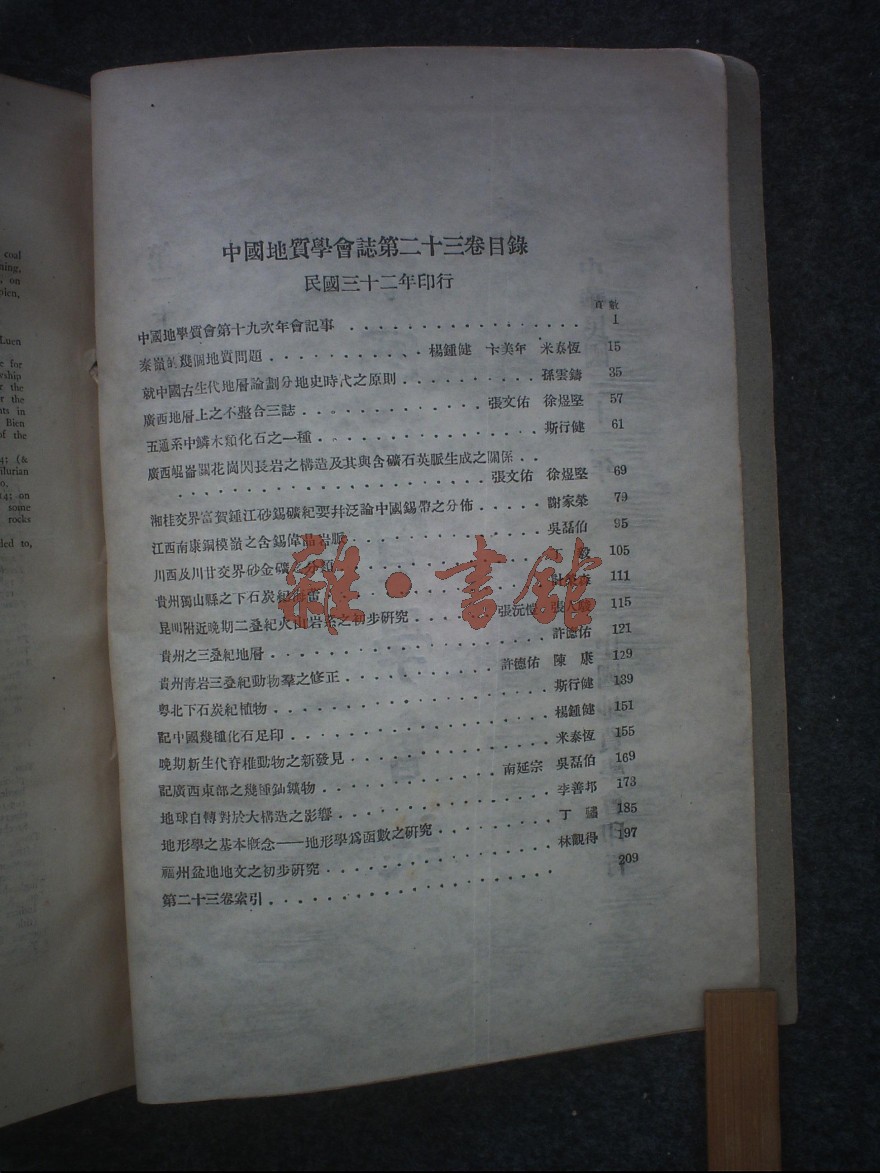 coal
ning,
, on
olen,
Luen
e for
wship
r the
r the
nts in
Bien
of the
4; (&
ilurian
o.
14; on
some
rocks
led to,
中國地質學會誌第二十三卷目錄
民國三十二年印行
頁數
中國地學質會第十九次年會記事 1
秦嶺的幾個地質問題 楊鍾健 卞美年 米泰恆 15
就中國古生代地層論劃分地史時代之原則 孫雲鑄 35
廣西地層上之不整合三誌 張文佑 徐煜堅 57
五通系中鱗木類化石之一種 斯行健 61
廣西崐崙關花崗閃長岩之構造及其與含礦石英脈生成之關係
張文佑 徐煜堅 69
湘桂交界富賀鍾江砂錫礦紀要幷泛論中國錫帶之分佈 謝家榮 79
江西南康銅模嶺之含錫偉晶岩脈 吳磊伯 95
川西及川甘交界砂金礦之分類 丁毅 105
貴州獨山縣之下石炭紀海 111
昆明附近晚期二疊紀火山岩系之初步研究 張沅愷 張人駿 115
貴州之三疊紀地層 許德佑 121
貴州靑岩三疊紀動物羣之修正 許德佑 陳康 129
粤北下石炭紀植物 斯行健 139
記中國幾種化石足印 楊鍾健 151
晚期新生代脊椎動物之新發見 米泰恆 155
記廣西東部之幾種鈾鑛物 南延宗 吳磊伯 169
地球自轉對於大構造之影響 李善邦 173
地形學之基本槪念——地形學爲函數之硏究 丁驌 185
福州盆地地文之初步硏究 林觀得 197
第二十三卷索引 209
雜·書館